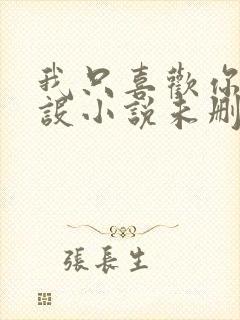 我只喜歡你
設小說未刪
張長生